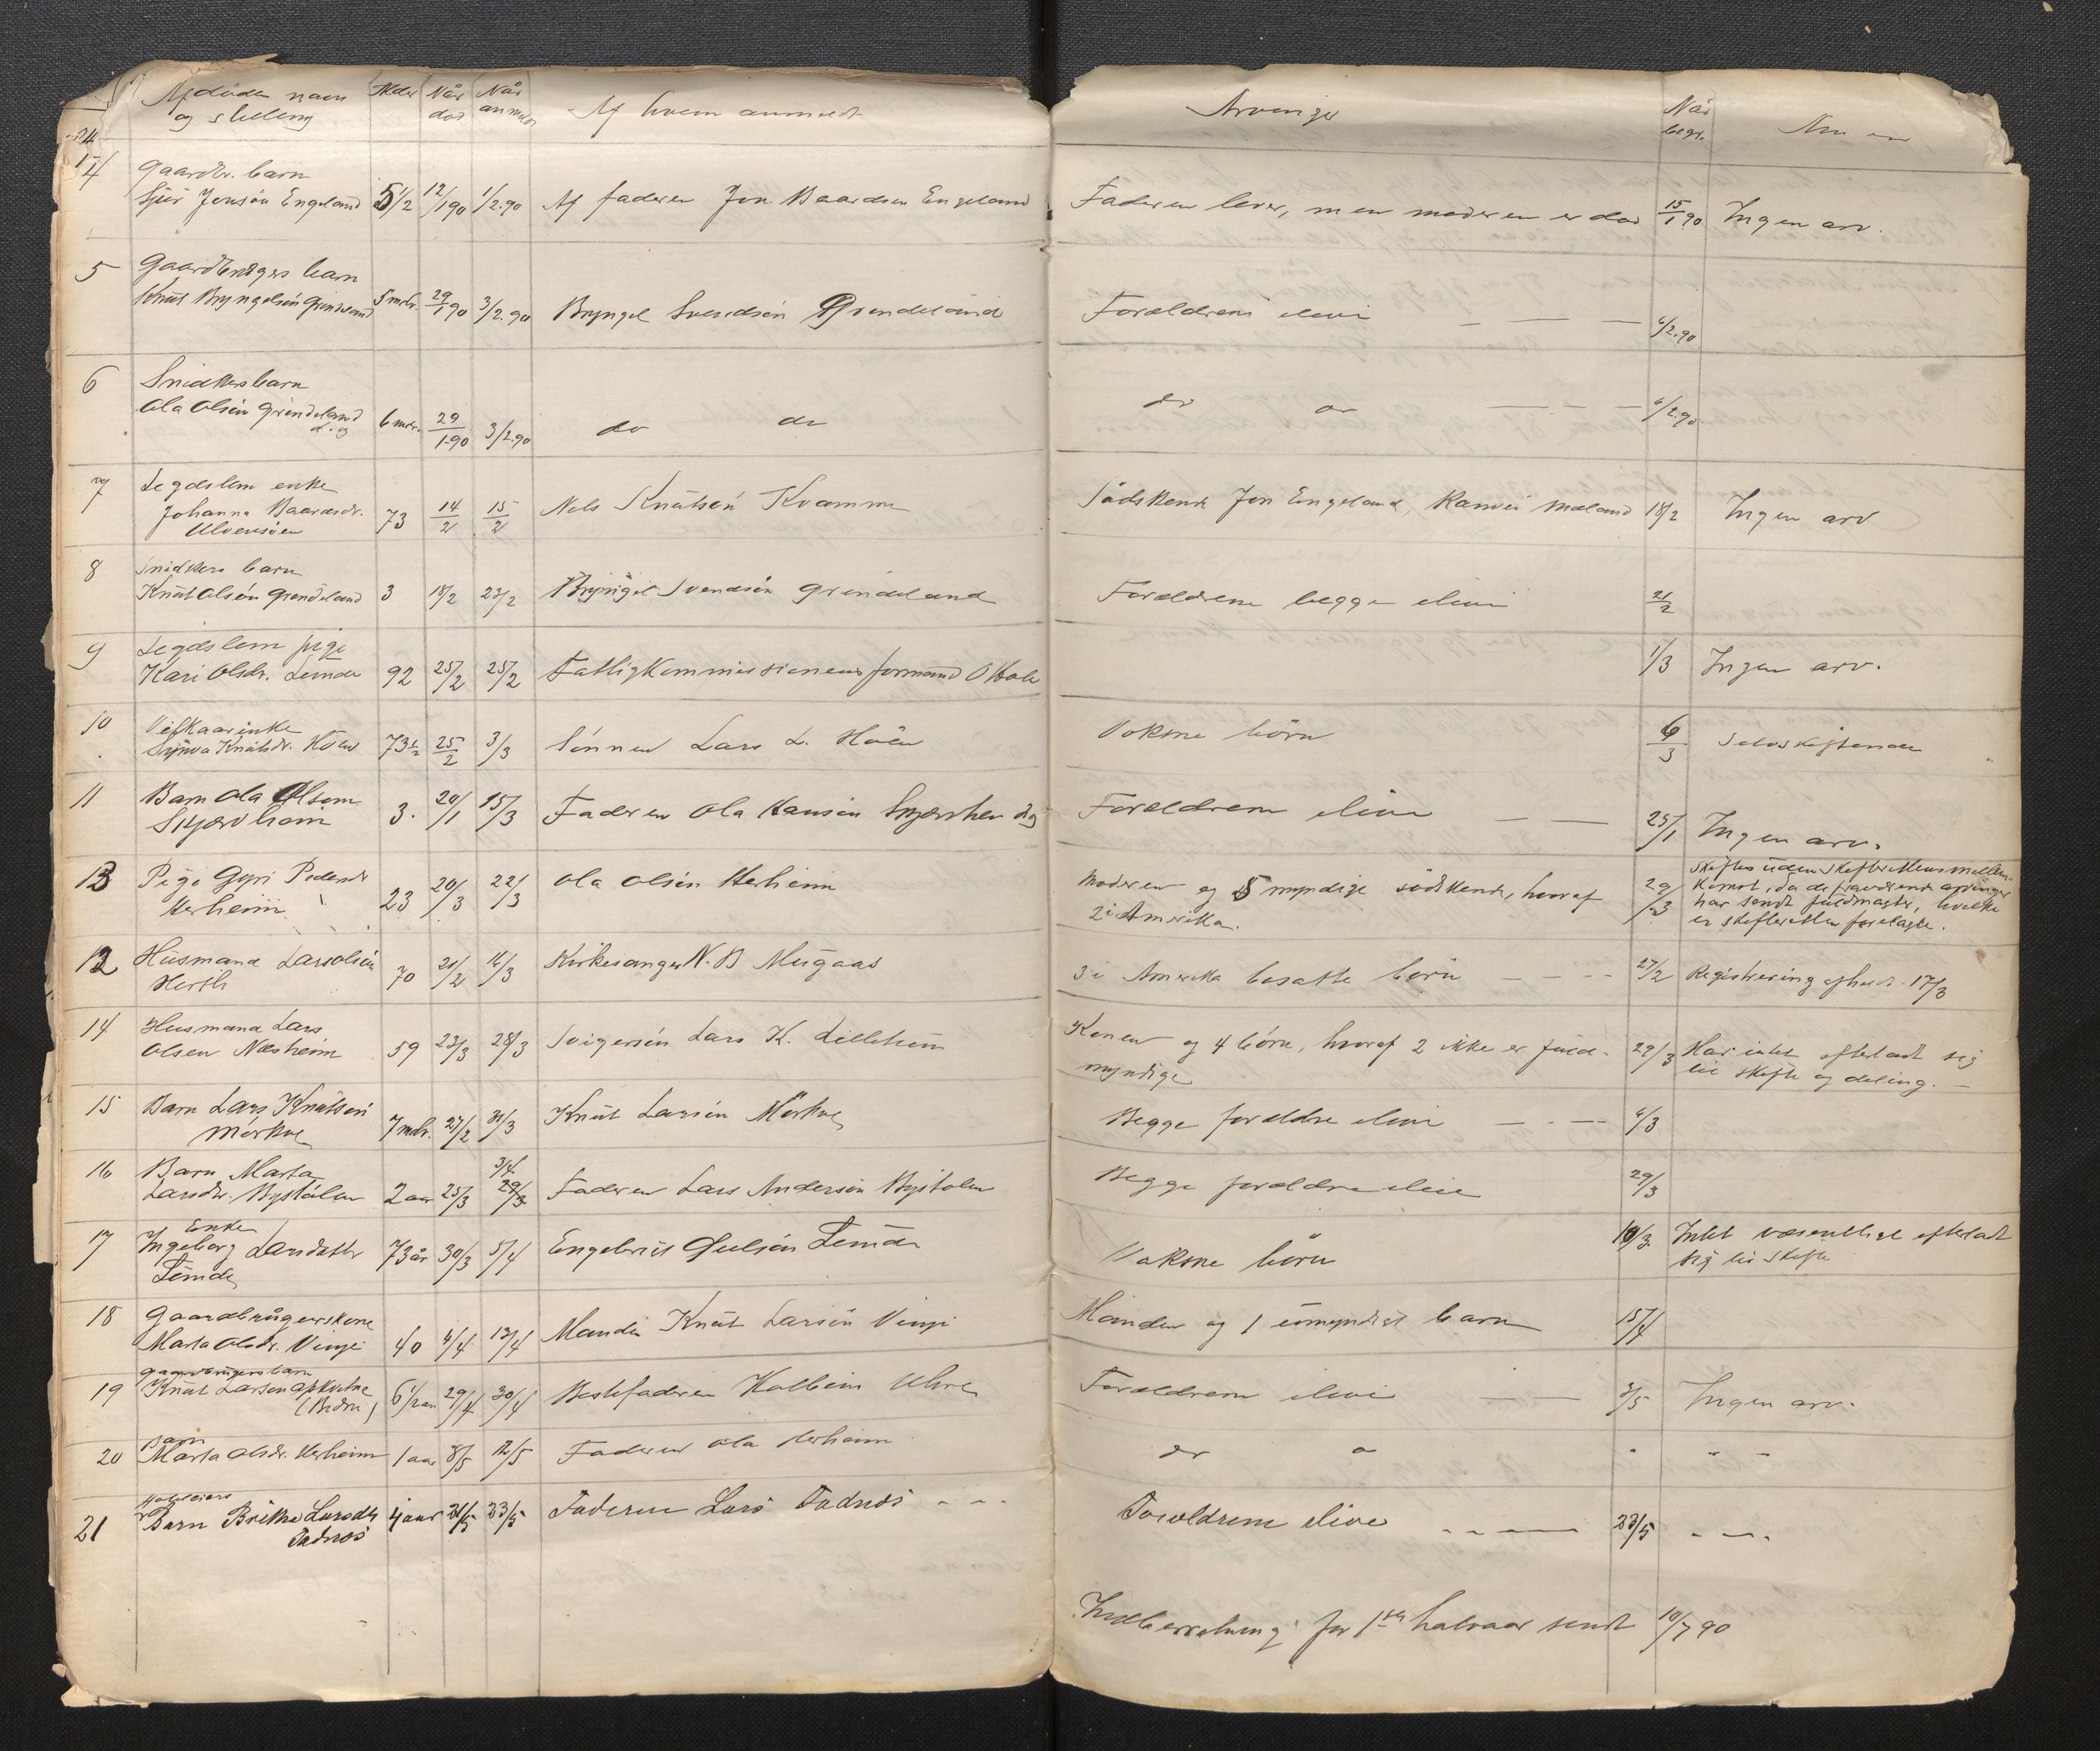 Afdødes navn og stilling | Alder | Når død | Når anmeldt | Af hvem anmeldt | Arvinger | Når begr. | Anm
4 | Gaardbr. barn
Sjur Jonsøn Engeland | 5 1/2 | 12/1 90 | 1/2.90 | Af faderen Jon Baardsen Engeland | Faderen lever, men moderen er død | 15/1 90 | Ingen arv.
5 | Gaardbrugers barn
Knut Bryngelsøn Grindeland | 5 mdr. | 29/1 90 | 3/2.90 | Bryngel Svendsøn Grindeland | Forældrene ilive | 6/2.90
6 | Snidkers barn
Ola Olsøn Grindeland | 6 mdr. | 29/1.90 | 3/2.90 | do do | do do | 6/2.90
7 | Legdslem enke
Johanna Baardsdr.
Ulvensøen | 73 | 14/2 | 15/2 | Nels Knutsøn Kvamme | Sødskende Jon Engeland, Ranvei Mæland | 18/2 | Ingen arv
8 | Snidkers barn
Knut Olsøn Grindeland | 3 | 18/2 | 23/2 | Bryngel Svendsøn Grindeland | Forældrene begge ilive | 21/2
9 | Legdslem pige
Kari Olsdr. Lemde | 92 | 25/2 | 25/2 | Fattigkommissionens formand O Hole | 1/3 | Ingen arv.
10 | Vilkaarenke
Synva Knutsdr. Høen | 73 1/2 | 25/2 | 3/3 | Sønnen Lars L. Høen | Voksne börn | 6/3 | Selvskiftende
11 | Barn Ola Olsen
Skjervheim | 3. | 20/1 | 15/3 | Faderen Ola Hansen | Forældrene ilive | 25/1 | Ingen arv.
13 | Pige Guri Pedersdr
Herheim | 23 | 20/3 | 22/3 | Ola Olsen Herheim | Moderen og 5 myndige sødskende, hvoraf
2 i Amerika. | 29/3 | Skiftes uden skifterettens mellem-
komst, da de fraværende arvinger
har sendt fuldmagter, hvilke
er skifteretten forelagte.
12 | Husmand Lars Olsøn
Herth | 70 | 21/2 | 16/3 | Kirkesanger N. B Mugaas | 3 i Amerika bosatte börn | 27/2 | Registrering afholdt 17/3
14 | Husmand Lars
Olsen Næsheim | 59 | 23/3 | 28/3 | Svigersøn Lars K. Lilletun | Konen og 4 börn, hvoraf 2 ikke er fuld-
myndige | 29/3 | Har intet efterladt sig
til skifte og deling.
15 | Barn Lars Knutsøn
Mørkve | 7 mdr. | 27/2 | 31/3 | Knut Larsøn Mørkve | Begge forældre ilive | 6/3
16 | Barn Marta
Larsdtr. Bystølen | 2 aar | 25/3 | 3/4 29/3 | Faderen Lars Andersøn Bystølen | Begge forældre ilive | 29/3
17 | Enke
Ingeborg Larsdatter
Lemde | 73 år | 30/3 | 5/4 | Engebrict Lemde | Voksne börn | 10/3. | Intet væsentligt efterladt
sig til skifte
18 | Gaardbrugerskone
Marta Olsdr. Vinje | 40 | 4/4 | 13/4 | Manden Knut Larsøn Vinje | Manden og 1 umyndigt barn | 15/4
19 | Gaardbrugers barn
Knut Larsen
(Bidne) | 6 1/2 aar | 29/4 | 30/4 | Bestefaderen Kolbein | Forældrene ilive | 3/5 | Ingen arv.
20 | Barn
Marta Olsdr. Herheim | 1 aar | 8/5 | 12/5 | Faderen Ola Herheim | do do | " | " "
21 | Barn Brithe Larsdtr
Tadnæs | 4 aar | 21/5 | 23/5 | Faderen Lars Tadnæs | Forældrene ilive | 23/5
Indberetning for 1ste halvaar sendt 10/7 90